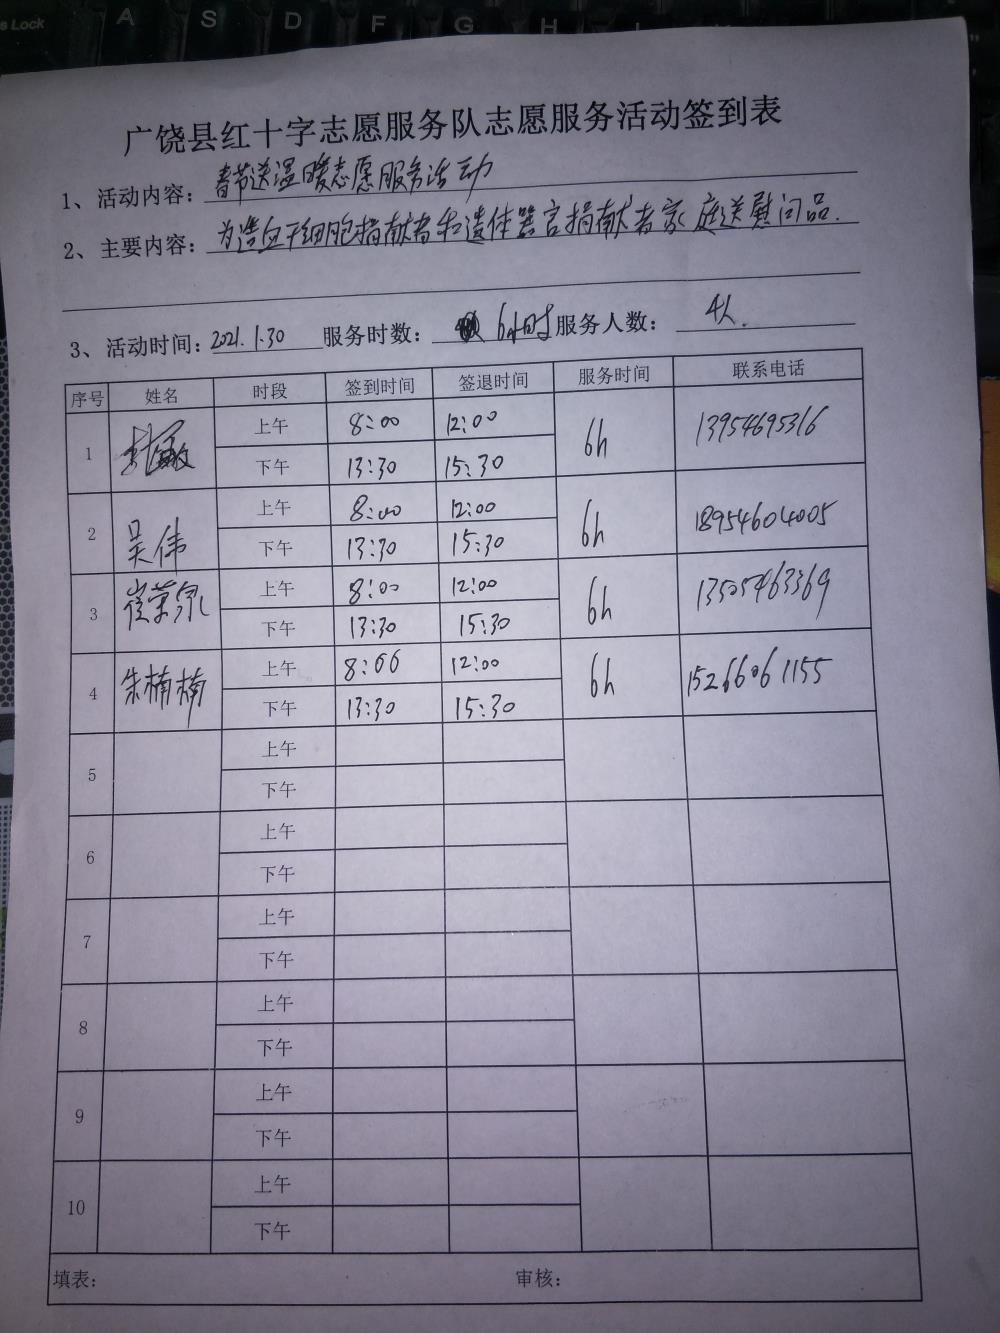 s Lock A S D F G H
广饶县红十字志愿服务队志愿服务活动签到表
1、活动内容：春节送温暖志愿服务活动
2、主要内容：为造血干细胞捐献者和遗体器官捐献者家庭送慰问品.
3、活动时间：2021.1.30 服务时数：6小时 服务人数：4人.
序号 姓名 时段 签到时间 签退时间 服务时间 联系电话
1 上午 8:00 12:00 6h 13954695316
下午 13:30 15:30
2 吴伟 上午 8:00 12:00 6h 18954604005
下午 13:30 15:30
3 崔荣泉 上午 8:00 12:00 6h 13505463369
下午 13:30 15:30
4 朱楠楠 上午 8:00 12:00 6h 15266061155
下午 13:30 15:30
5 上午
下午
6 上午
下午
7 上午
下午
8 上午
下午
9 上午
下午
10 上午
下午
填表： 审核：